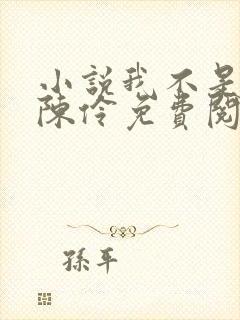 小說我不是
陳伶免費閱
孫平